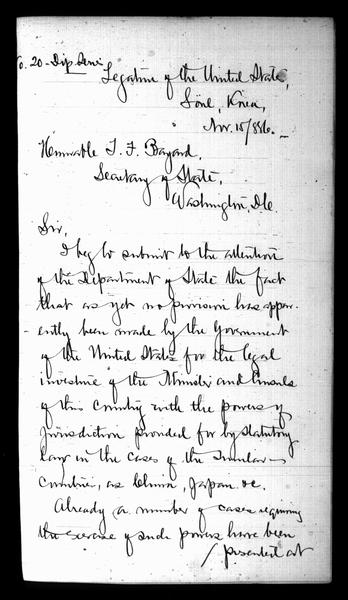 No. 20 - Dip. Seri
Legation of the United States,
Söul, Korea,
Nov. 15/886.
Honorable T. F. Bayard,
Secretary of State,
Washington, D.C.
Sir,
I beg to submit to the attention
of the Department of State the fact
that as yet no provision has appar-
ently been made by the Government
of the United States for the legal
investure of the Minister and Consuls
of this Country with the powers of
jurisdiction provided for by statutory
law in the cases of the similar
Countries, as China, Japan &c.
Already a number of cases requiring
the exercise of such powers have been
/ presented at